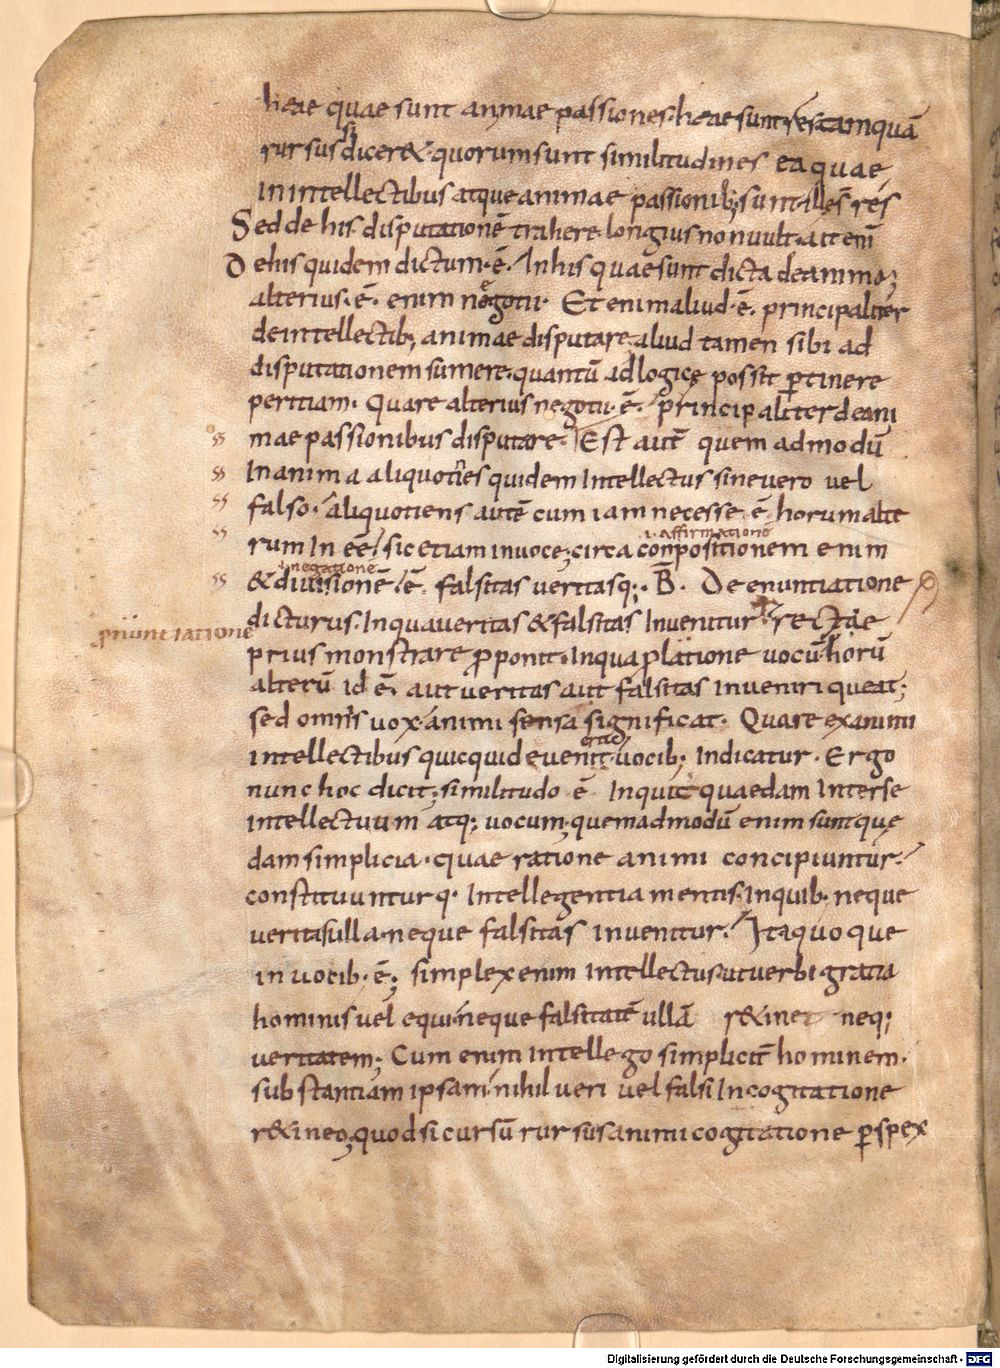 heae quae sunt animae passiones. heae sunt res tamquā
rursus si dicer&. quorum sunt similitudines ea quae
in intellectibus atque animae passionib; sunt. illęs res
Sed de his disputationē trahere longius non uult. ait enī
De his quidem dictum. ē. In his quae sunt dicta de animo;
alterius. ē. enim negotii. Et enim aliud. ē. principaliter
de intellectib; animae disputare. aliud tamen sibi ad
disputationem sumere. quantū ad logicę possit ꝑtinere
peritiam. Quare alterius negotii. ē. principaliter de ani
mae passionibus disputare. Est autē quem ad modū
In anima aliquoties quidem Intellectus sine vero vel
falso. aliquotiens autē cum iam necesse. ē. horum alte
i. affirmatione
rum In eē. sic etiam in uoce; circa conpositionem enim
i. negatione
& diuisionē. ē. falsitas veritasq;. B. De enuntiatione
dicturus. In qua veritas & falsitas Inuenitur. recte
pnuntiatione
prius monstrare ꝓponit. In qua ꝓlatione uocū horū
alterū id ē. aut veritas aut falsitas inueniri queat;
sed omnis uox animi sensa significat. Quare ex animi
intellectibus quicquid euenit. uocib; Indicatur. Ergo
nunc hoc dicit; similitudo ē Inquit quaedam Inter se
intellectuum atq; uocum. quemadmodū enim sunt quę
dam simplicia. quae ratione animi concipiuntur.
constituuntur q. Intellegentia mentis. In quib. neque
veritas ulla. neque falsitas inuenitur. Ita quoque
in uocib. ē; simplex enim intellectus ut verbi gratia
hominis vel equi. neque falsitatē ullā r&inet neq;
veritatem; Cum enim Intellego simplicit̄ hominem.
substantiam ipsam. nihil ueri vel falsi In cogitatione
r&ineo; quod si cursū rursus animi cogitatione ꝑspex
Digitalisierung gefördert durch die Deutsche Forschungsgemeinschaft - DFG